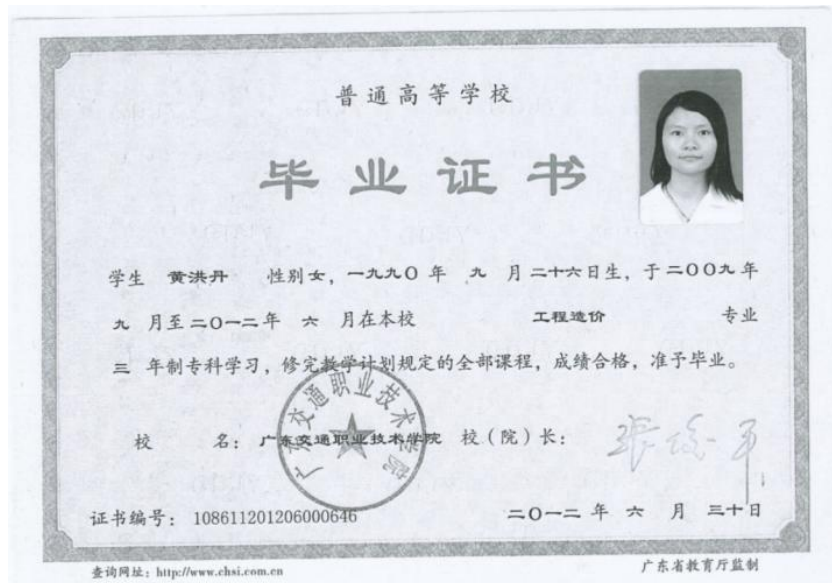 普通高等学校
毕业证书
学生 黄洪丹 性别女，一九九〇年 九 月二十六日生，于二〇〇九年
九 月至二〇一二年 六 月在本校 工程造价 专业
三 年制专科学习，修完教学计划规定的全部课程，成绩合格，准予毕业。
广东交通职业技术学院
校 名：广东交通职业技术学院 校（院）长：
证书编号：108611201206000646 二〇一二 年 六 月 三十日
查询网址：http://www.chsi.com.cn 广东省教育厅监制